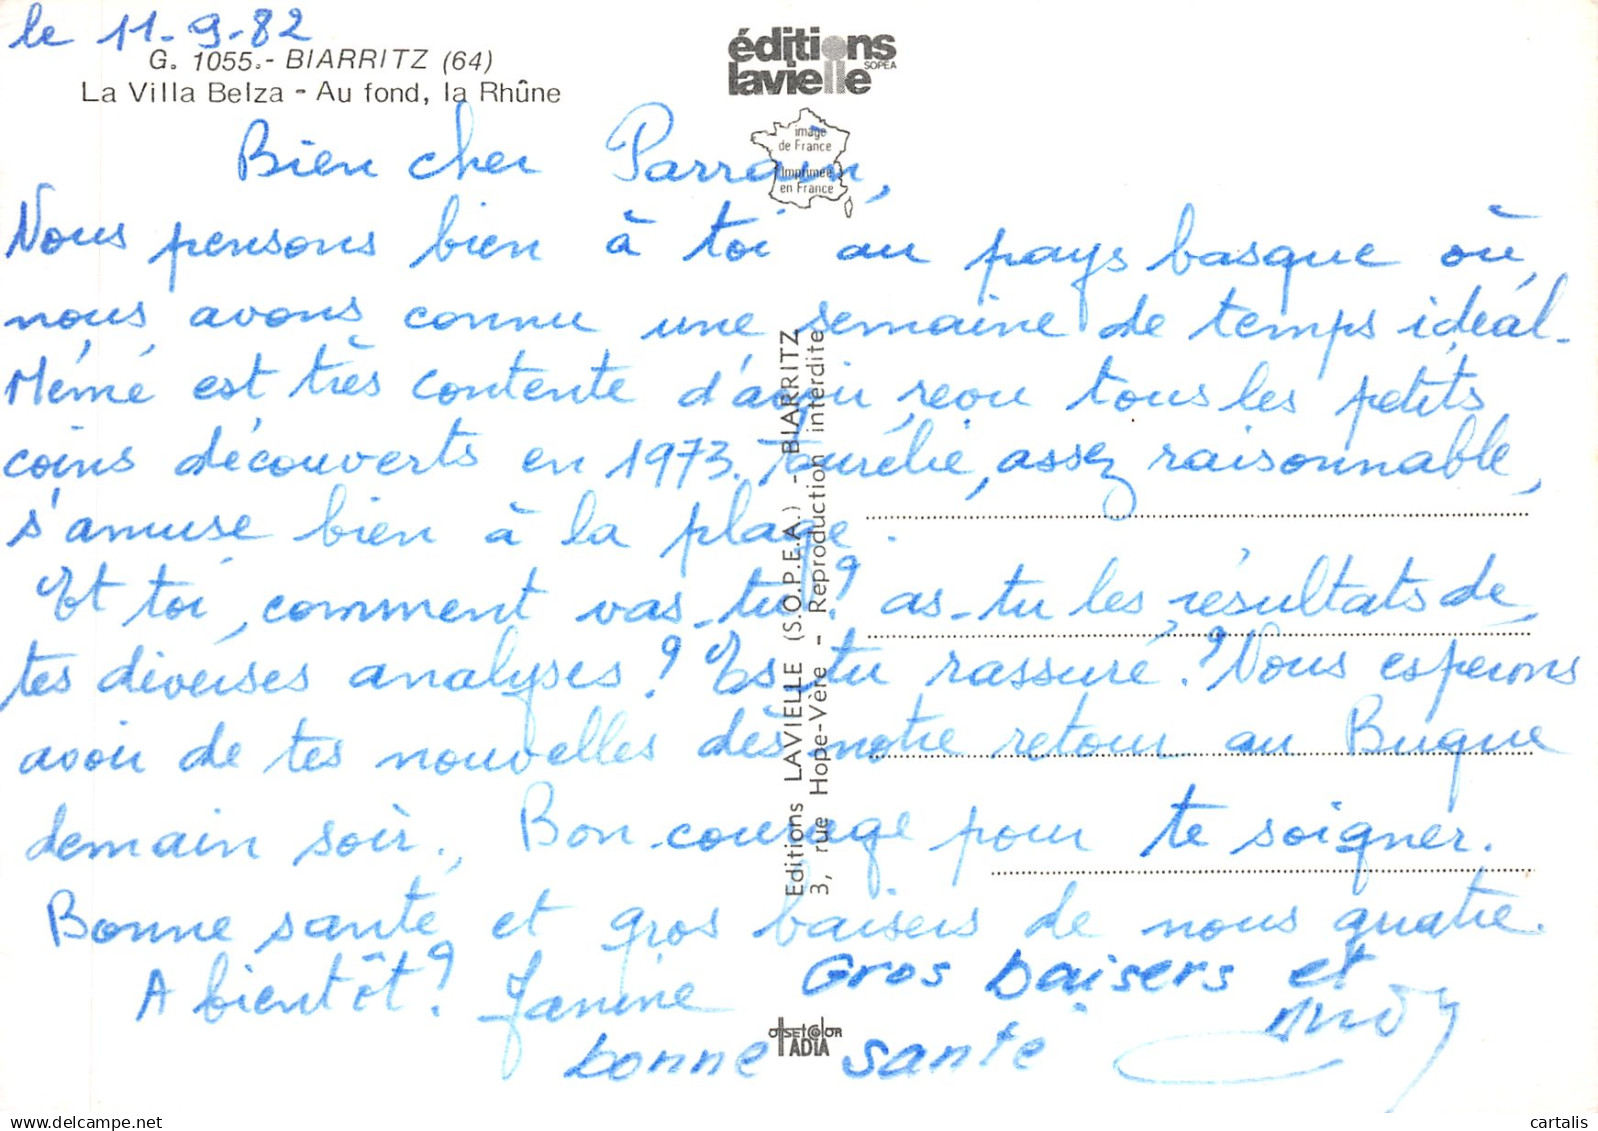 le 11-9-82
G. 1055.- BIARRITZ (64)
La Villa Belza - Au fond, la Rhûne
éditions
lavielle
SOPEA
image
de France
Imprimée
en France
Bien cher Parrain,
Nous pensons bien à toi au pays basque où
nous avons connu une semaine de temps idéal.
Mémé est très contente d'avoir revu tous les petits
coins découverts en 1973. Aurélie, assez raisonnable,
s'amuse bien à la plage.
Et toi, comment vas-tu? as-tu les résultats de
tes diverses analyses? Es-tu rassuré? Nous espérons
avoir de tes nouvelles dès notre retour au Bugue
demain soir. Bon courage pour te soigner.
Bonne santé et gros baisers de nous quatre.
A bientôt? Janine
Gros baisers et
bonne sante
Editions LAVIELLE (S.O.P.E.A.) - BIARRITZ
3, rue Hope-Vère - Reproduction interdite
offset color
ADIA
cartalis.com